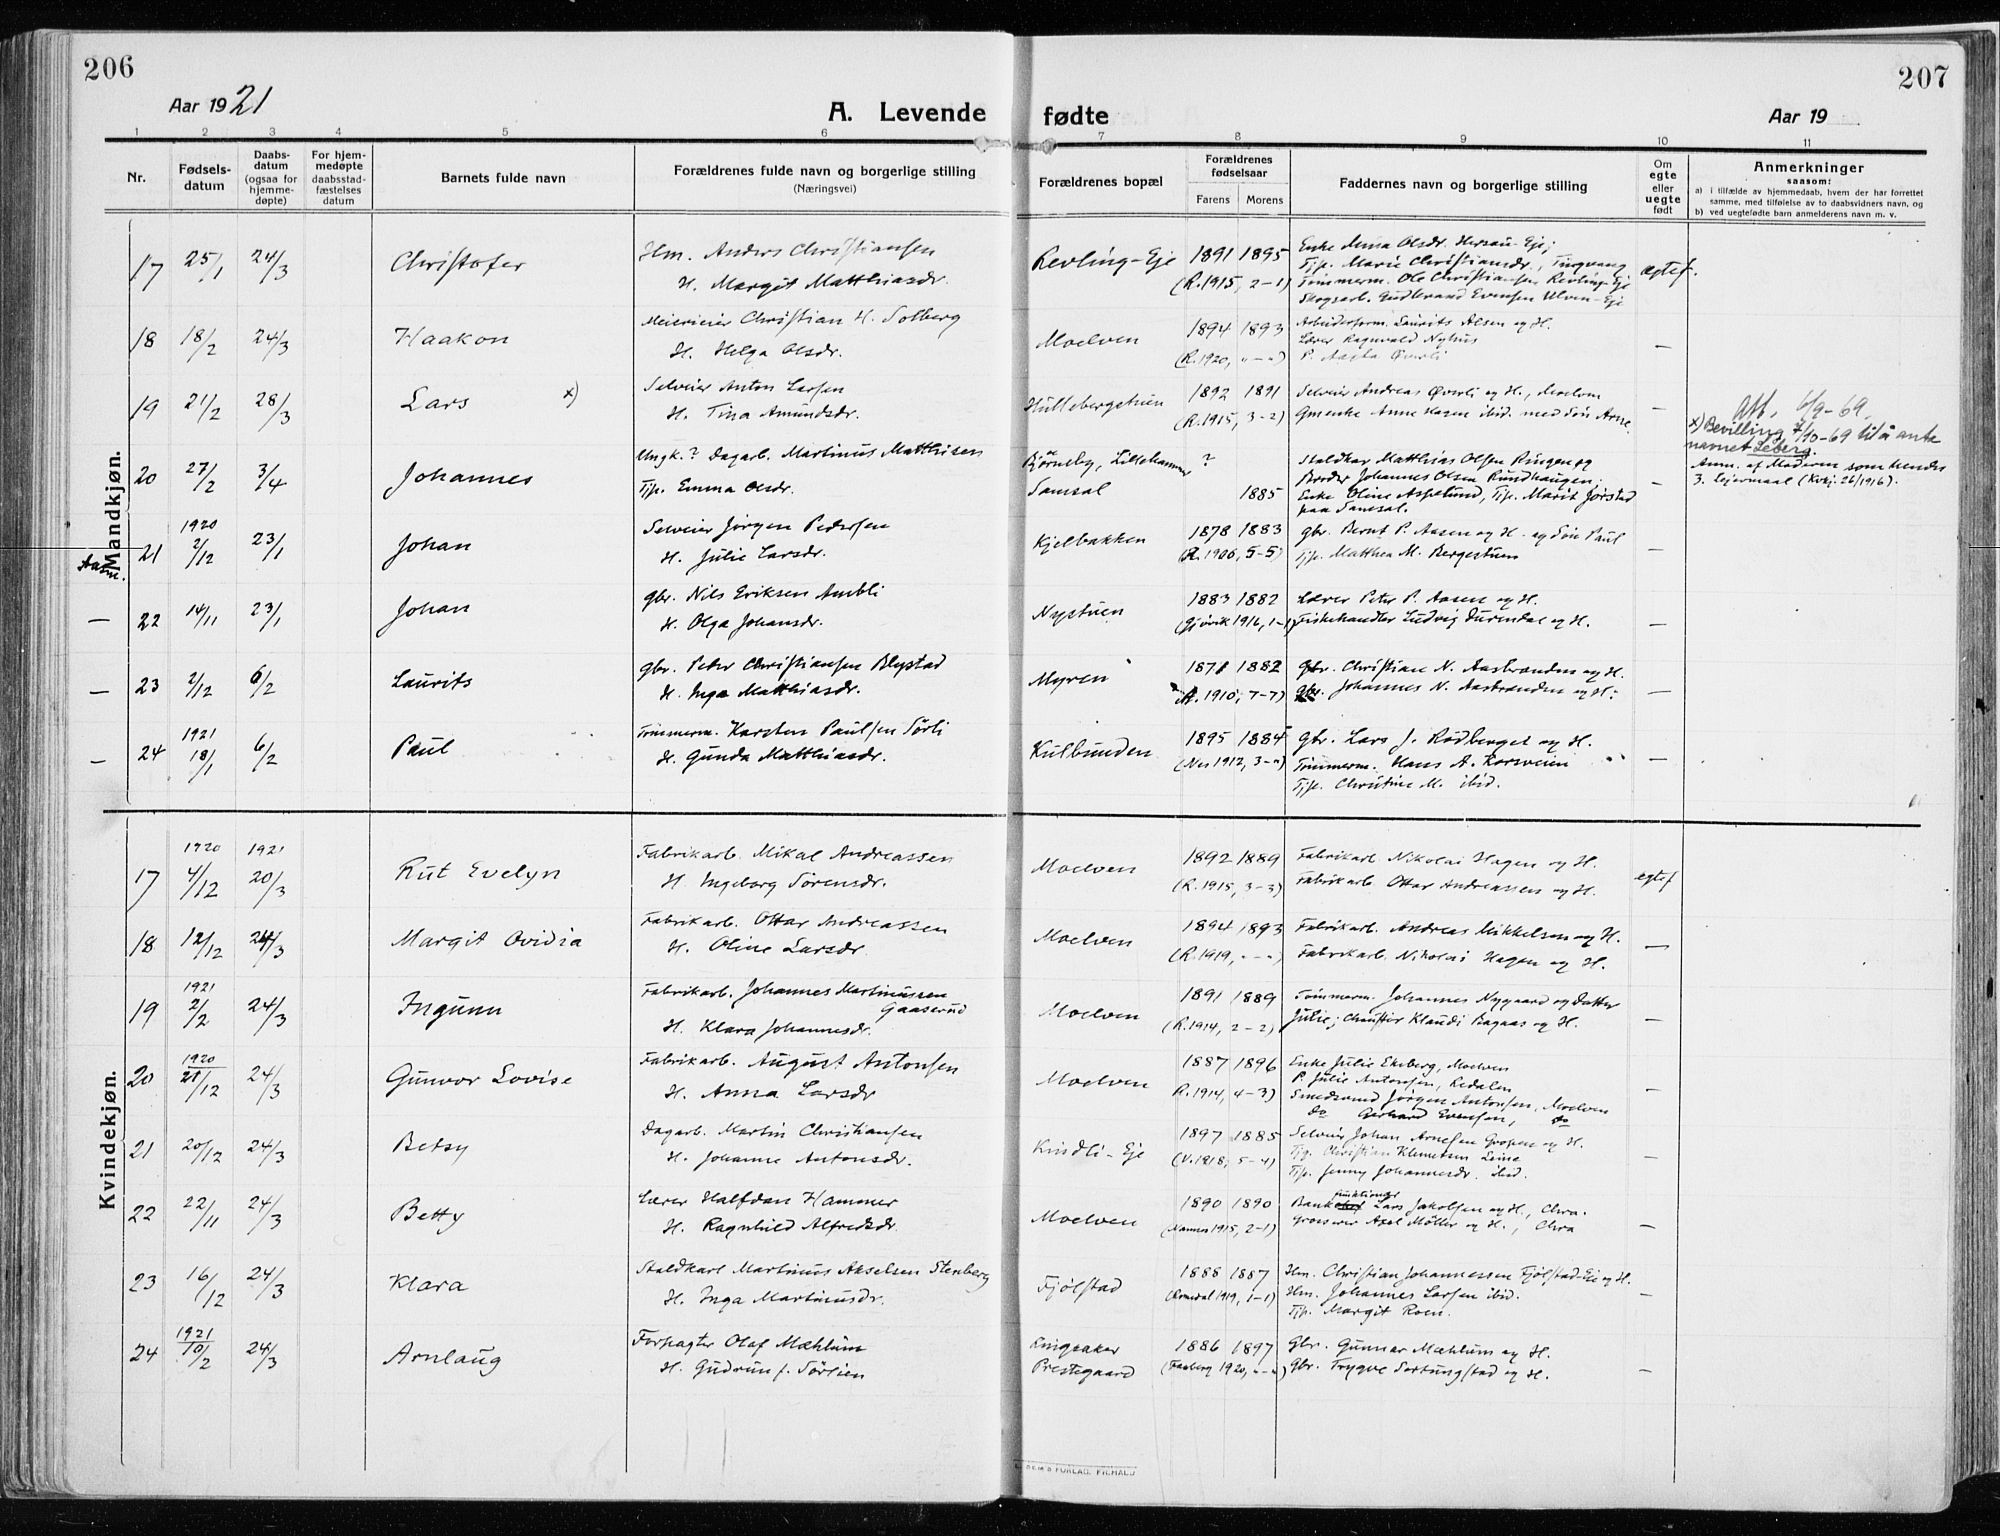 206
207
Aar 1921
A. Levende fødte
Aar 19
1 2 3 4 5 6 7 8 9 10 11
Nr.
Fødsels-
datum
Daabs-
datum
(ogsaa for
hjemme-
døpte)
For hjem-
medøpte
daabsstad-
fæstelses
datum
Barnets fulde navn
Forældrenes fulde navn og borgerlige stilling
(Næringsvei)
Forældrenes bopæl
Forældrenes
fødselsaar
Farens Morens
Faddernes navn og borgerlige stilling
Om
egte
eller
uegte
født
Anmerkninger
saasom:
a) i tilfælde av hjemmedaab, hvem der har forrettet
samme, med tilføielse av to daabsvidners navn, og
b) ved uegtefødte barn anmelderens navn m. v.
Mandkjøn.
17 25/1 24/3 Christofer Hm. Anders Christiansen Revling-Eje 1891 1895 Enke Mina Olsdr.
H. Margit Matthiasdr. (R. 1915, 2-1) Tjp. Marie Christiansdr., Tingvang
Tømmerm. Ole Christiansen Revling-Eje
Skogsarb. Gudbrand Evensen Ulven-Eje
egtef.
18 18/2 24/3 Haakon Meierieier Christian H. Solberg Moelven 1894 1893 Arbeidsform. Laurits Olsen og H.
H. Helga Olsdr. (R. 1920, "-") Lærer Ragnvald Nyhus
P. Aasta Øverli
—
19 21/2 28/3 Lars x) Selveier Anton Larsen Hullebergstuen 1892 1891 Selveier Andreas Øverli og H.,
H. Tina Amundsdr. (R. 1915, 3-2) Gmenke Anne Hagen ibid. med Søn Arne.
—
Att. 6/9-69
x) Bevilling 7/10-69 til å anta
navnet Leberg.
20 27/2 3/4 Johannes Ungk.? Dagarb. Martinus Matthisen Bjørneby, Lillehammer ? Staldkar Matthias Olsen Ringen og
Tjp. Emma Olsdr. Samsal 1885 Broder Johannes Olsen Rundhaugen;
Enke Oline Asplund, Tjp. Marit Jørstad
paa Samsal.
—
Anm. af Moderen som hendes
3. Lejermaal (Kvkj. 26/1916).
1920
21 2/12 23/1 Johan Selveier Jørgen Pedersen Kjelbakken 1878 1883 Gbr. Bernt P. Aasen og H. og Søn Paul
H. Julie Larsdr. (R. 1906, 5-5) Tjp. Matthea M. Bergestuen
—
— 22 14/11 23/1 Johan Gbr. Nils Eriksen Ambli Nystuen 1883 1882 Lærer Peter P. Aasen og H.
H. Olga Johansdr. (Gjøvik 1916, 1-1) Fiskehandler Ludvig Durendal og H.
—
— 23 2/12 6/2 Laurits Gbr. Peter Christiansen Blystad Myren 1878 1882 Gbr. Christian N. Aasbrenden og H.
H. Inga Matthiasdr. (R. 1910, 7-7) Gbr. Johannes N. Aasbrenden og H.
—
1921
— 24 18/1 6/2 Paul Tømmerm. Karsten Paulsen Sørli Kulbunden 1895 1884 Gbr. Lars J. Rødberget og H.
H. Gunda Matthiasdr. (Nes 1912, 3-") Tømmerm. Hans A. Korsveien
Tjp. Christine M. ibid.
—
Kvindekjøn.
1920 1921
17 4/12 20/3 Rut Evelyn Fabrikarb. Mikal Andreassen Moelven 1892 1889 Fabrikarb. Nikolai Hagen og H.
H. Ingeborg Sørensdr. (R. 1915, 3-3) Fabrikarb. Ottar Andreassen og H.
egtef
18 12/12 24/3 Margit Ovidia Fabrikarb. Ottar Andreassen Moelven 1894 1893 Fabrikarb. Andreas Mikkelsen og H.
H. Oline Larsdr. (R. 1919, "-") Fabrikarb. Nikolai Hagen og H.
—
1921
19 2/2 24/3 Ingunn Fabrikarb. Johannes Martinussen Gaaserud Moelven 1891 1889 Tømmerm. Johannes Nygaard og Datter
H. Klara Johannesdr. (R. 1914, 2-2) Julie; Klaudi Bagaas og H.
—
1920
20 21/12 24/3 Gunvor Lovise Fabrikarb. August Antonsen Moelven 1887 1896 Enke Julie Ekeberg, Moelven
H. Anna Larsdr R. 1914, 4-3) P. Julie Antonsen, Redalen
Smedsvend Jørgen Antonsen, Moelven
do Gerhard Evensen, do
—
21 20/12 24/3 Betsy Dagarb. Martin Christiansen Kindli-Eje 1897 1885 Selveier Johan Arnesen Gropen og H.
H. Johanne Antonsdr. (V. 1918, 5-4) Tjg. Christian Klemetsen Leine
Tjp. Jenny Johannesdr. ibid.
—
22 22/11 24/3 Betty Lærer Halfdan Hammer Moelven 1890 1890 Bankfunktionær Lars Jakobsen og H., Chra.
H. Ragnhild Alfredsdr. (Hammer 1915, 2-1) Grosserer Axel Møller og H., Chra
—
23 16/12 24/3 Klara Staldkarl Martinus Akselsen Stenberg Fjølstad 1888 1887 Hm. Christian Johannessen Fjølstad-Eje og H.
H. Inga Martinusdr. (Romedal 1919, 1-1) Hm. Johannes Larsen ibid.
Tjp. Margit Roen.
—
1921
24 10/2 24/3 Arnlaug Forpagter Olaf Mæhlum Ringsaker 1886 1897 Gbr. Gunnar Mæhlum og H.
H. Gudrun f. Sørlien Prestegaard (Faaberg 1920, "-") Gbr. Trygve Sortungstad og H.
—